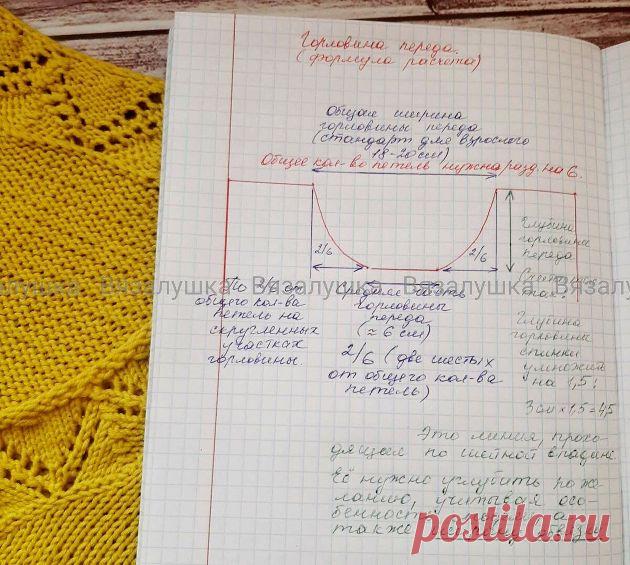 Горловина переда.
(формула расчета)
Общая ширина
горловины переда
(стандарт для взрослого
18-20 см)
Общее кол-во петель нужно разд. на 6.
2/6
2/6
Глубина
горловины
переда
так:
Глубина
горловины
спинки
умножить
на 1,5:
3 см х 1,5 = 4,5
По 2/6 от
общего кол-ва
петель на
скругленных
участках
горловины.
средняя часть
горловины
переда
(≈ 6 см)
2/6 (две шестых
от общего кол-ва
петель)
Это линия, прохо-
дящая по шейной впадине
Её нужно углубить по же-
ланию, учитывая осо-
бенности
также
Вязалушка Вязалушка Вязалушка Вязалушка
postila.ru